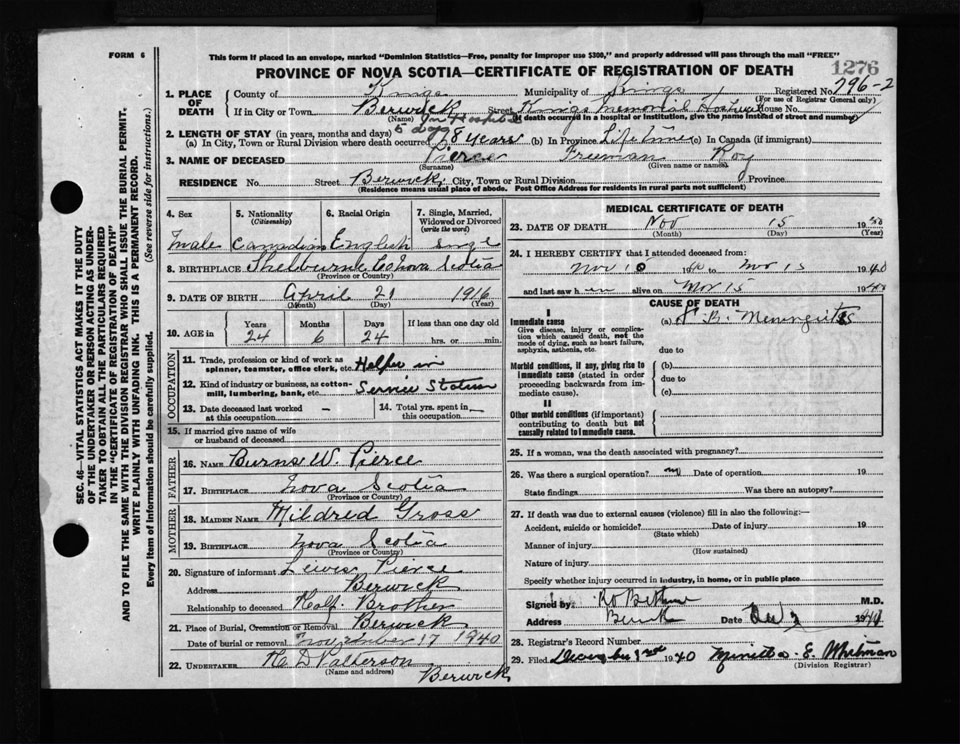 FORM 6
This form if placed in an envelope, marked "Dominion Statistics—Free, penalty for improper use $300," and properly addressed will pass through the mail "FREE"
1276
PROVINCE OF NOVA SCOTIA—CERTIFICATE OF REGISTRATION OF DEATH
1. PLACE OF DEATH
County of Kings Municipality of Kings Registered No. 796-2
(For use of Registrar General only)
If in City or Town Berwick Street Kings Memorial Hospital House No.
(Name) If death occurred in a hospital or institution, give the name instead of street and number
2. LENGTH OF STAY (in years, months and days) In Hospital 5 days
(a) In City, Town or Rural Division where death occurred 18 years (b) In Province Lifetime (c) In Canada (if immigrant)
3. NAME OF DECEASED Pierce Freeman Roy
(Surname) (Given name or names)
RESIDENCE No. Street Berwick City, Town or Rural Division Province
(Residence means usual place of abode. Post Office Address for residents in rural parts not sufficient)
4. Sex
Male
5. Nationality (Citizenship)
Canadian
6. Racial Origin
English
7. Single, Married, Widowed or Divorced (write the word)
8. BIRTHPLACE Shelburne Co Nova Scotia
(Province or Country)
9. DATE OF BIRTH April 21 1916
(Month) (Day) (Year)
10. AGE in
Years Months Days If less than one day old
24 6 24 hrs. or min.
OCCUPATION
11. Trade, profession or kind of work as spinner, teamster, office clerk, etc. Helper in
12. Kind of industry or business, as cotton-mill, lumbering, bank, etc. Service Station
13. Date deceased last worked at this occupation –
14. Total yrs. spent in this occupation –
15. If married give name of wife or husband of deceased
FATHER
16. NAME Burns W. Pierce
17. BIRTHPLACE Nova Scotia
(Province or Country)
MOTHER
18. MAIDEN NAME Mildred Gross
19. BIRTHPLACE Nova Scotia
(Province or Country)
20. Signature of informant Lewis Pierce
Address Berwick
Relationship to deceased Half Brother
21. Place of Burial, Cremation or Removal Berwick
Date of burial or removal November 17 1940
22. UNDERTAKER Patterson
(Name and address) Berwick
MEDICAL CERTIFICATE OF DEATH
23. DATE OF DEATH Nov 15 1940
(Month) (Day) (Year)
24. I HEREBY CERTIFY that I attended deceased from:
Nov 10 1940 to Nov 15 1940
and last saw him alive on Nov 15 1940
CAUSE OF DEATH
I
Immediate cause
Give disease, injury or complication which caused death, not the mode of dying, such as heart failure, asphyxia, asthenia, etc.
(a) T.B. Meningitis
due to
Morbid conditions, if any, giving rise to immediate cause (stated in order proceeding backwards from immediate cause).
(b)
due to
(c)
II
Other morbid conditions (if important) contributing to death but not causally related to immediate cause.
25. If a woman, was the death associated with pregnancy?
26. Was there a surgical operation? no Date of operation 19
State findings Was there an autopsy?
27. If death was due to external causes (violence) fill in also the following:—
Accident, suicide or homicide? Date of injury 19
(State which)
Manner of injury
(How sustained)
Nature of injury
Specify whether injury occurred in industry, in home, or in public place
Signed by M.D.
Address Berwick Date Dec 2 1940
28. Registrar's Record Number
29. Filed December 1940 E. Whitman
(Division Registrar)
SEC. 46—VITAL STATISTICS ACT MAKES IT THE DUTY
OF THE UNDERTAKER OR PERSON ACTING AS UNDER-
TAKER TO OBTAIN ALL THE PARTICULARS REQUIRED
IN THE "CERTIFICATE OF REGISTRATION OF DEATH"
AND TO FILE THE SAME WITH THE DIVISION REGISTRAR WHO SHALL ISSUE THE BURIAL PERMIT.
WRITE PLAINLY WITH UNFADING INK. THIS IS A PERMANENT RECORD.
Every item of information should be carefully supplied. (See reverse side for instructions.)